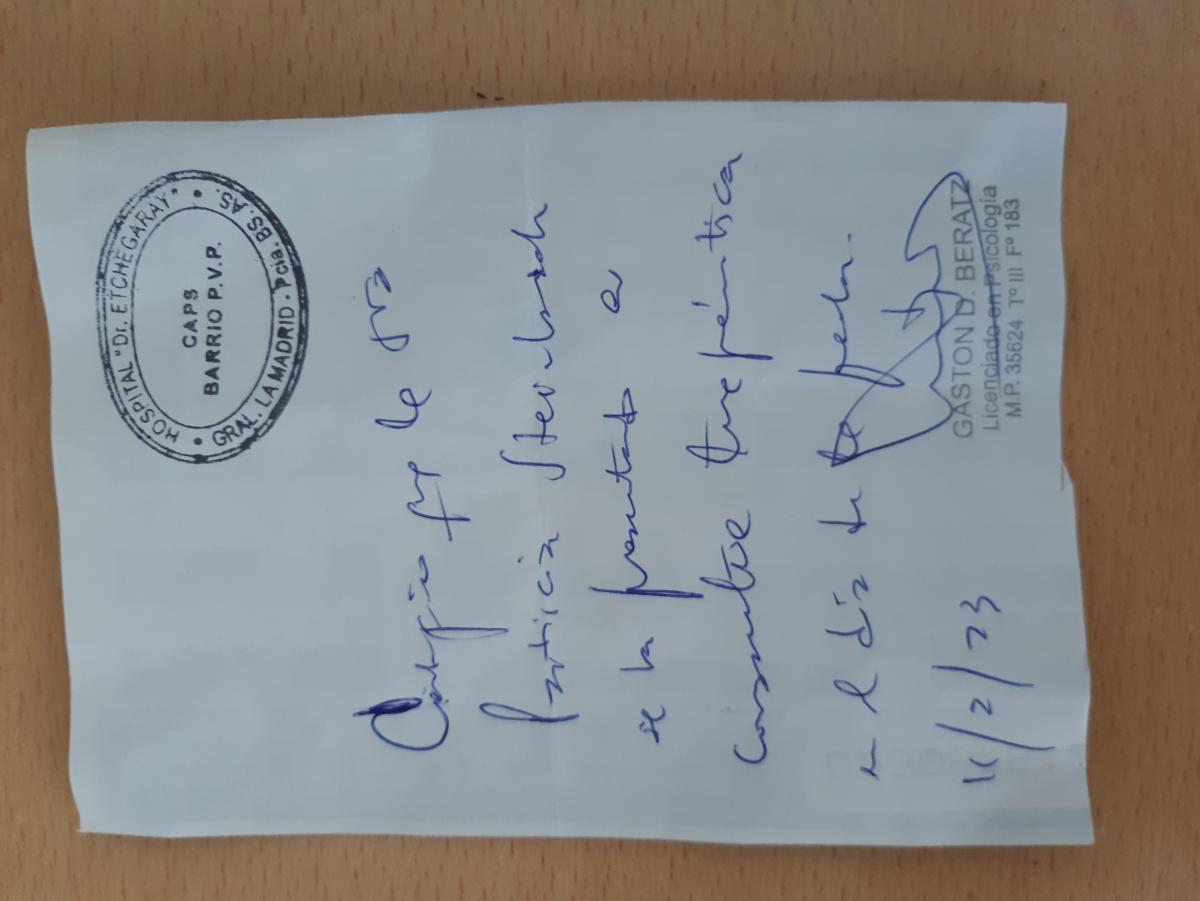 HOSPITAL "Dr. ETCHEGARAY"
CAPS
BARRIO P.V.P.
GRAL. LA MADRID. Pcia. BS. AS.
Certifico que la sra
Patricia
se ha presentado a
consulta terapéutica
en el día de la fecha.
2/23
GASTON D. BERATZ
Licenciado en Psicología
M.P. 35624 Tº III Fº 183